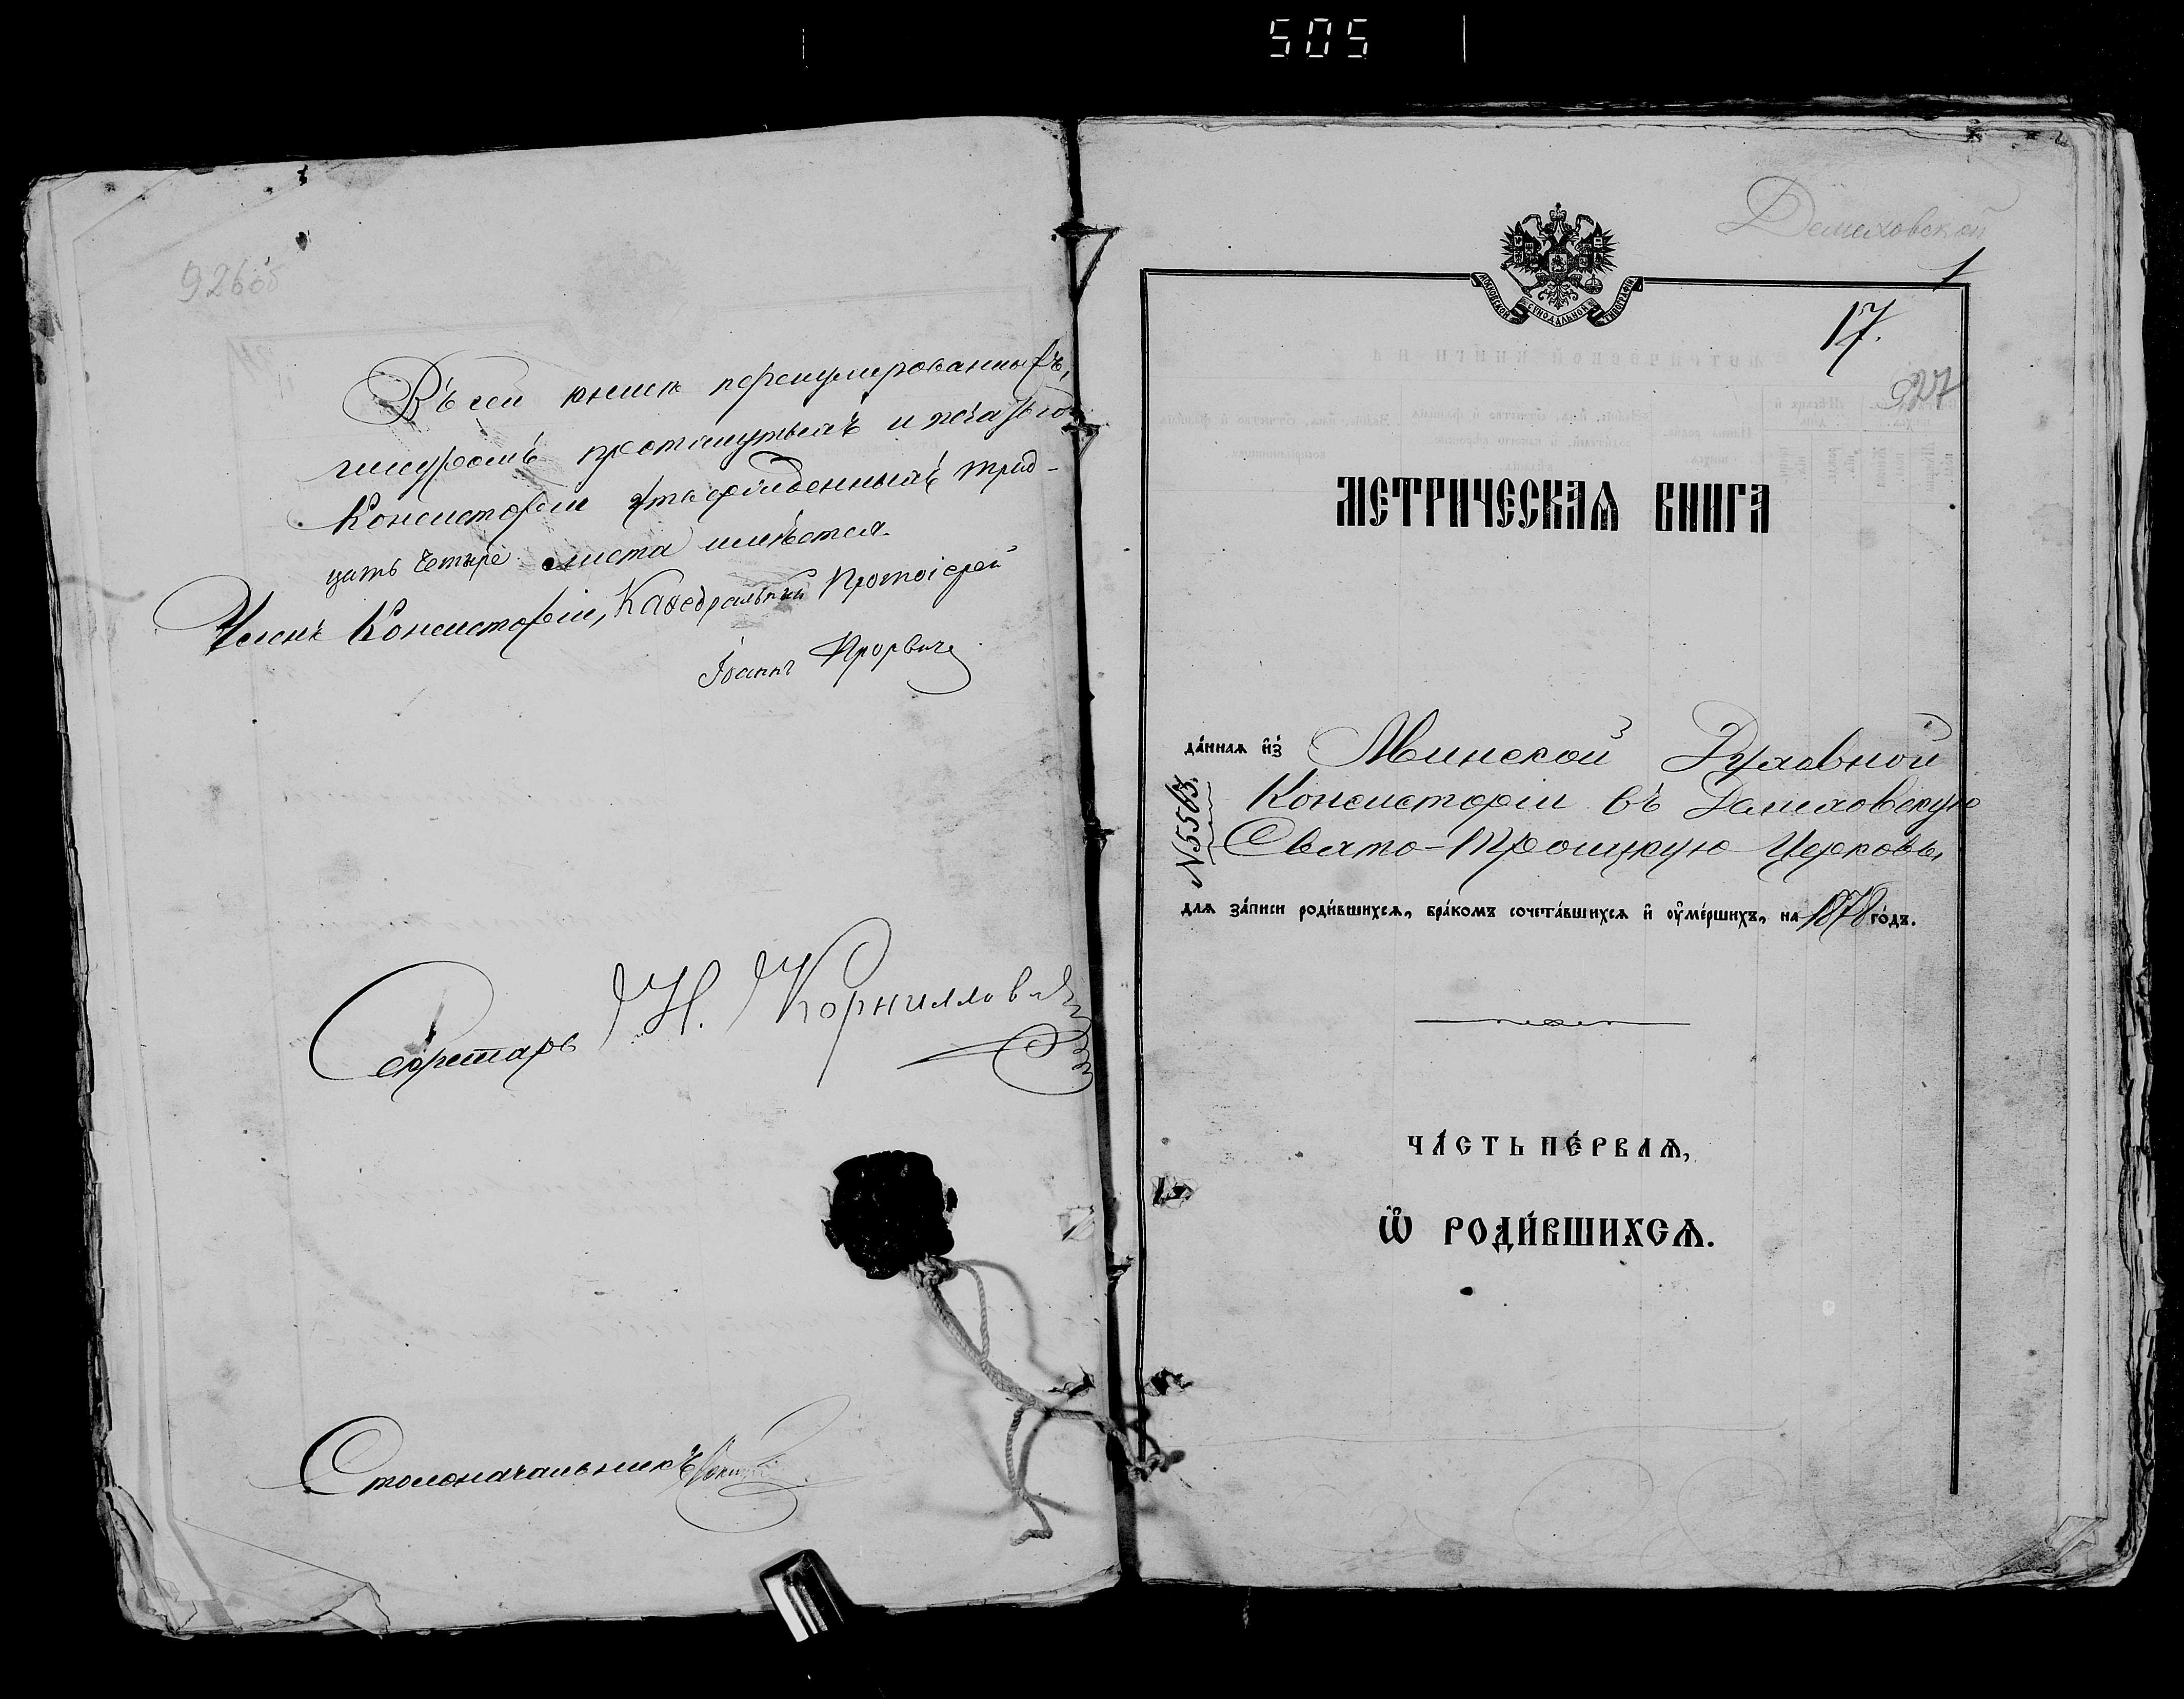 505
926об
Въ сей книгѣ перенумерованныхъ,
шнуромъ протянутыхъ и печатью
Консисторіи утвержденныхъ трид-
цать четыре листа имѣется.
Членъ Консисторіи, Каѳедральный Протоіерей
Іоаннъ Прорвичъ
Секретарь Н. Корниллов
Столоначальникъ
Демеховской
1
МОСКОВСКОЙ СѴНОДАЛЬНОЙ ТИПОГРАФІИ
17.
927
МЕТРИЧЕСКАѦ КНИГА
да́ннаѧ и҆з̾ Минской Духовной
№ 5563.
Консисторіи въ Демеховскую
Свято-Троицкую Церковь,
длѧ за́писи роди́вшихсѧ, бра́комъ сочета́вшихсѧ и҆ ᲂу҆ме́ршихъ, на 1878 го́дъ.
ЧА́СТЬ ПЕ́РВАѦ,
Ѽ РОДИ́ВШИХСѦ.